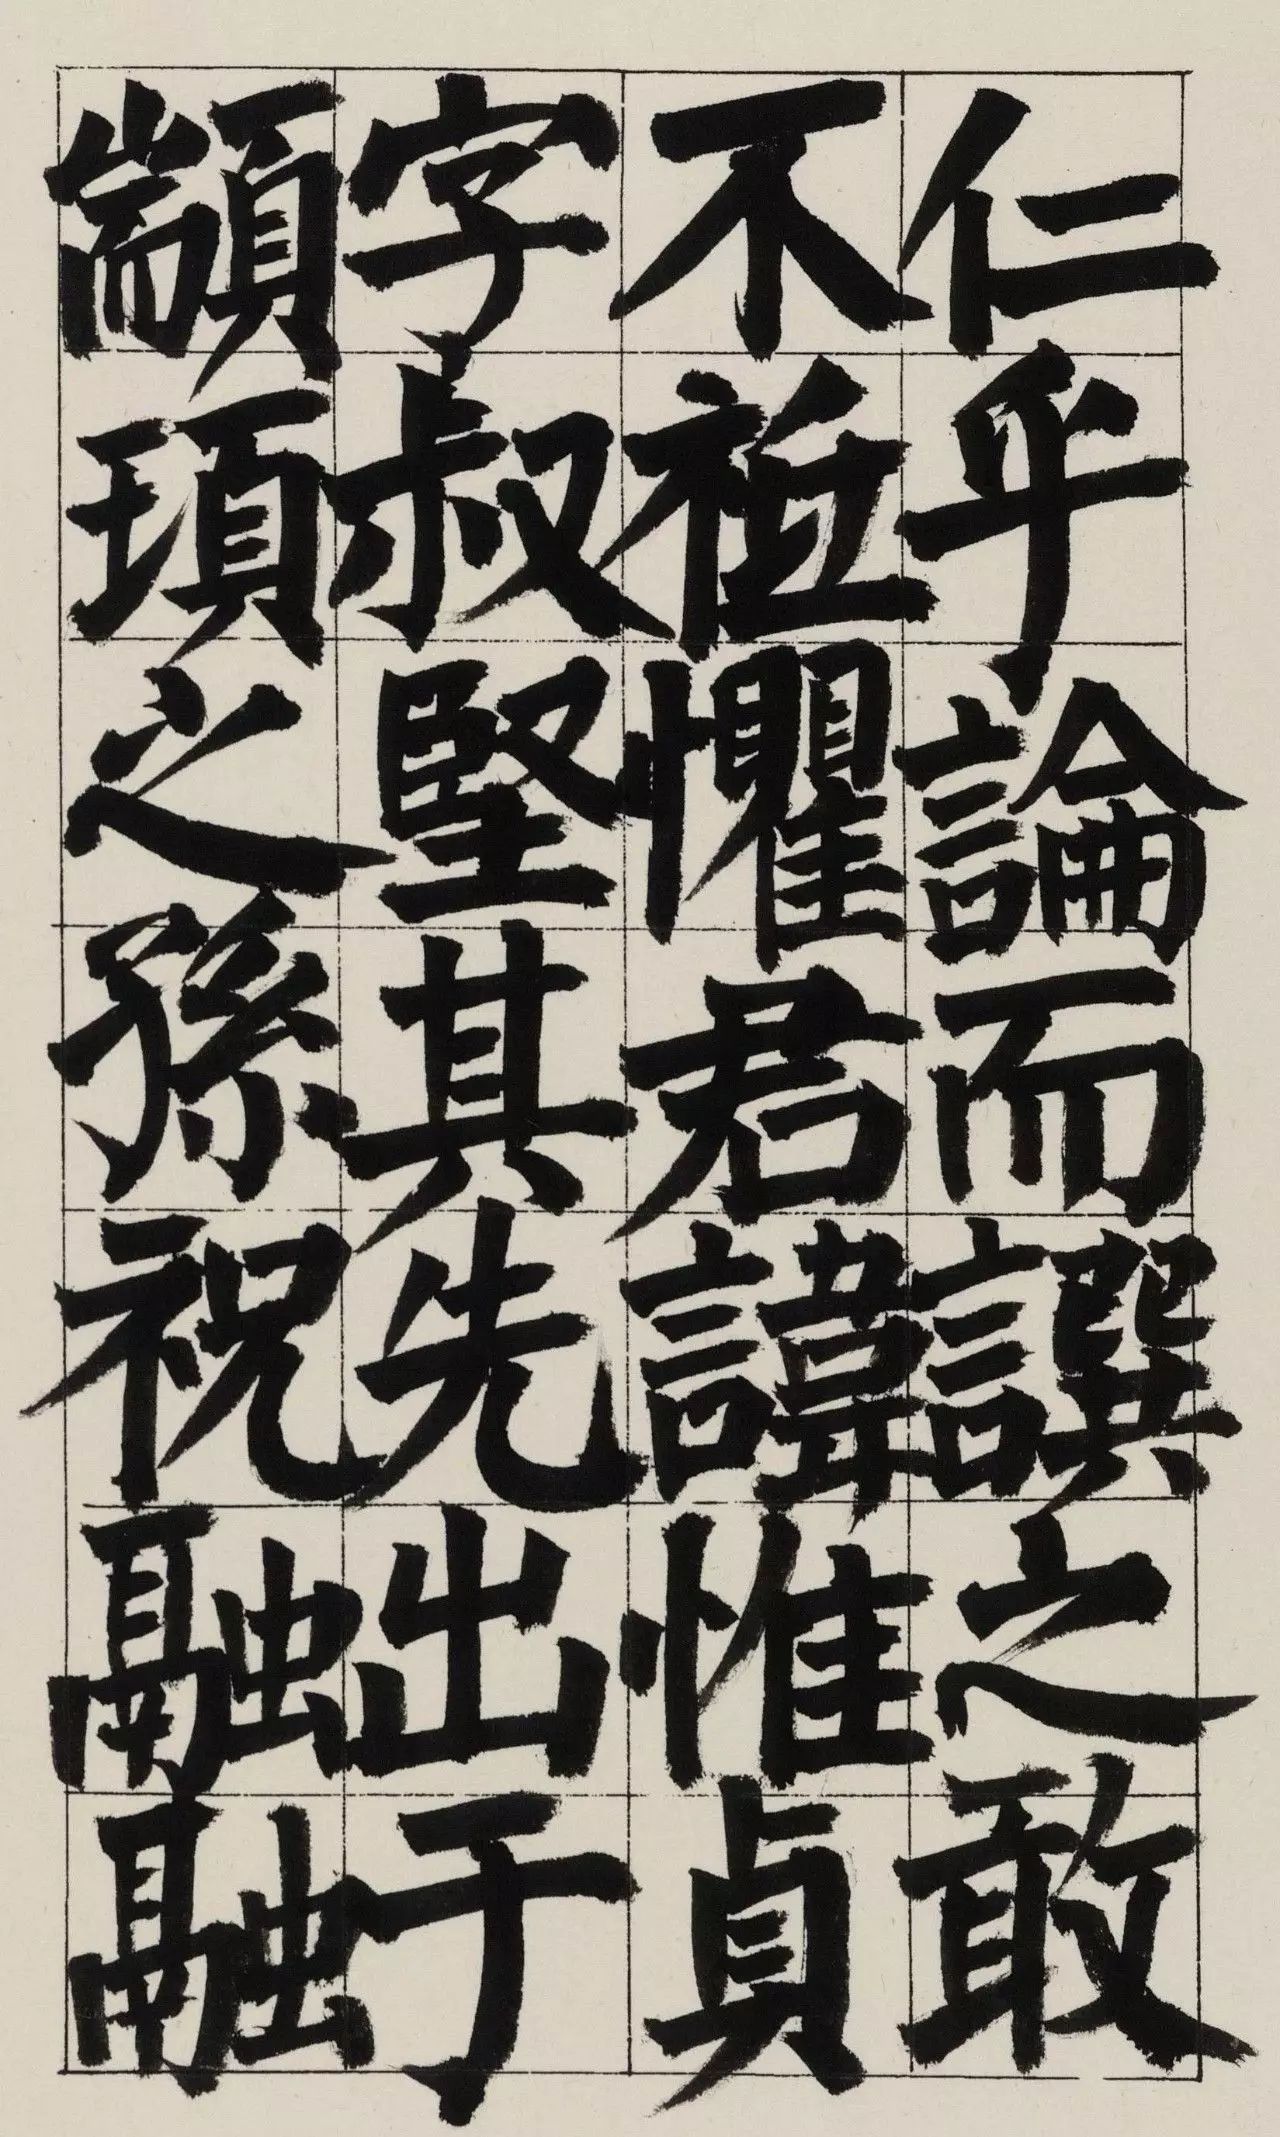 仁乎論而譔之敢
不祗懼君諱惟貞
字叔堅其先出于
顓頊之孫祝融融